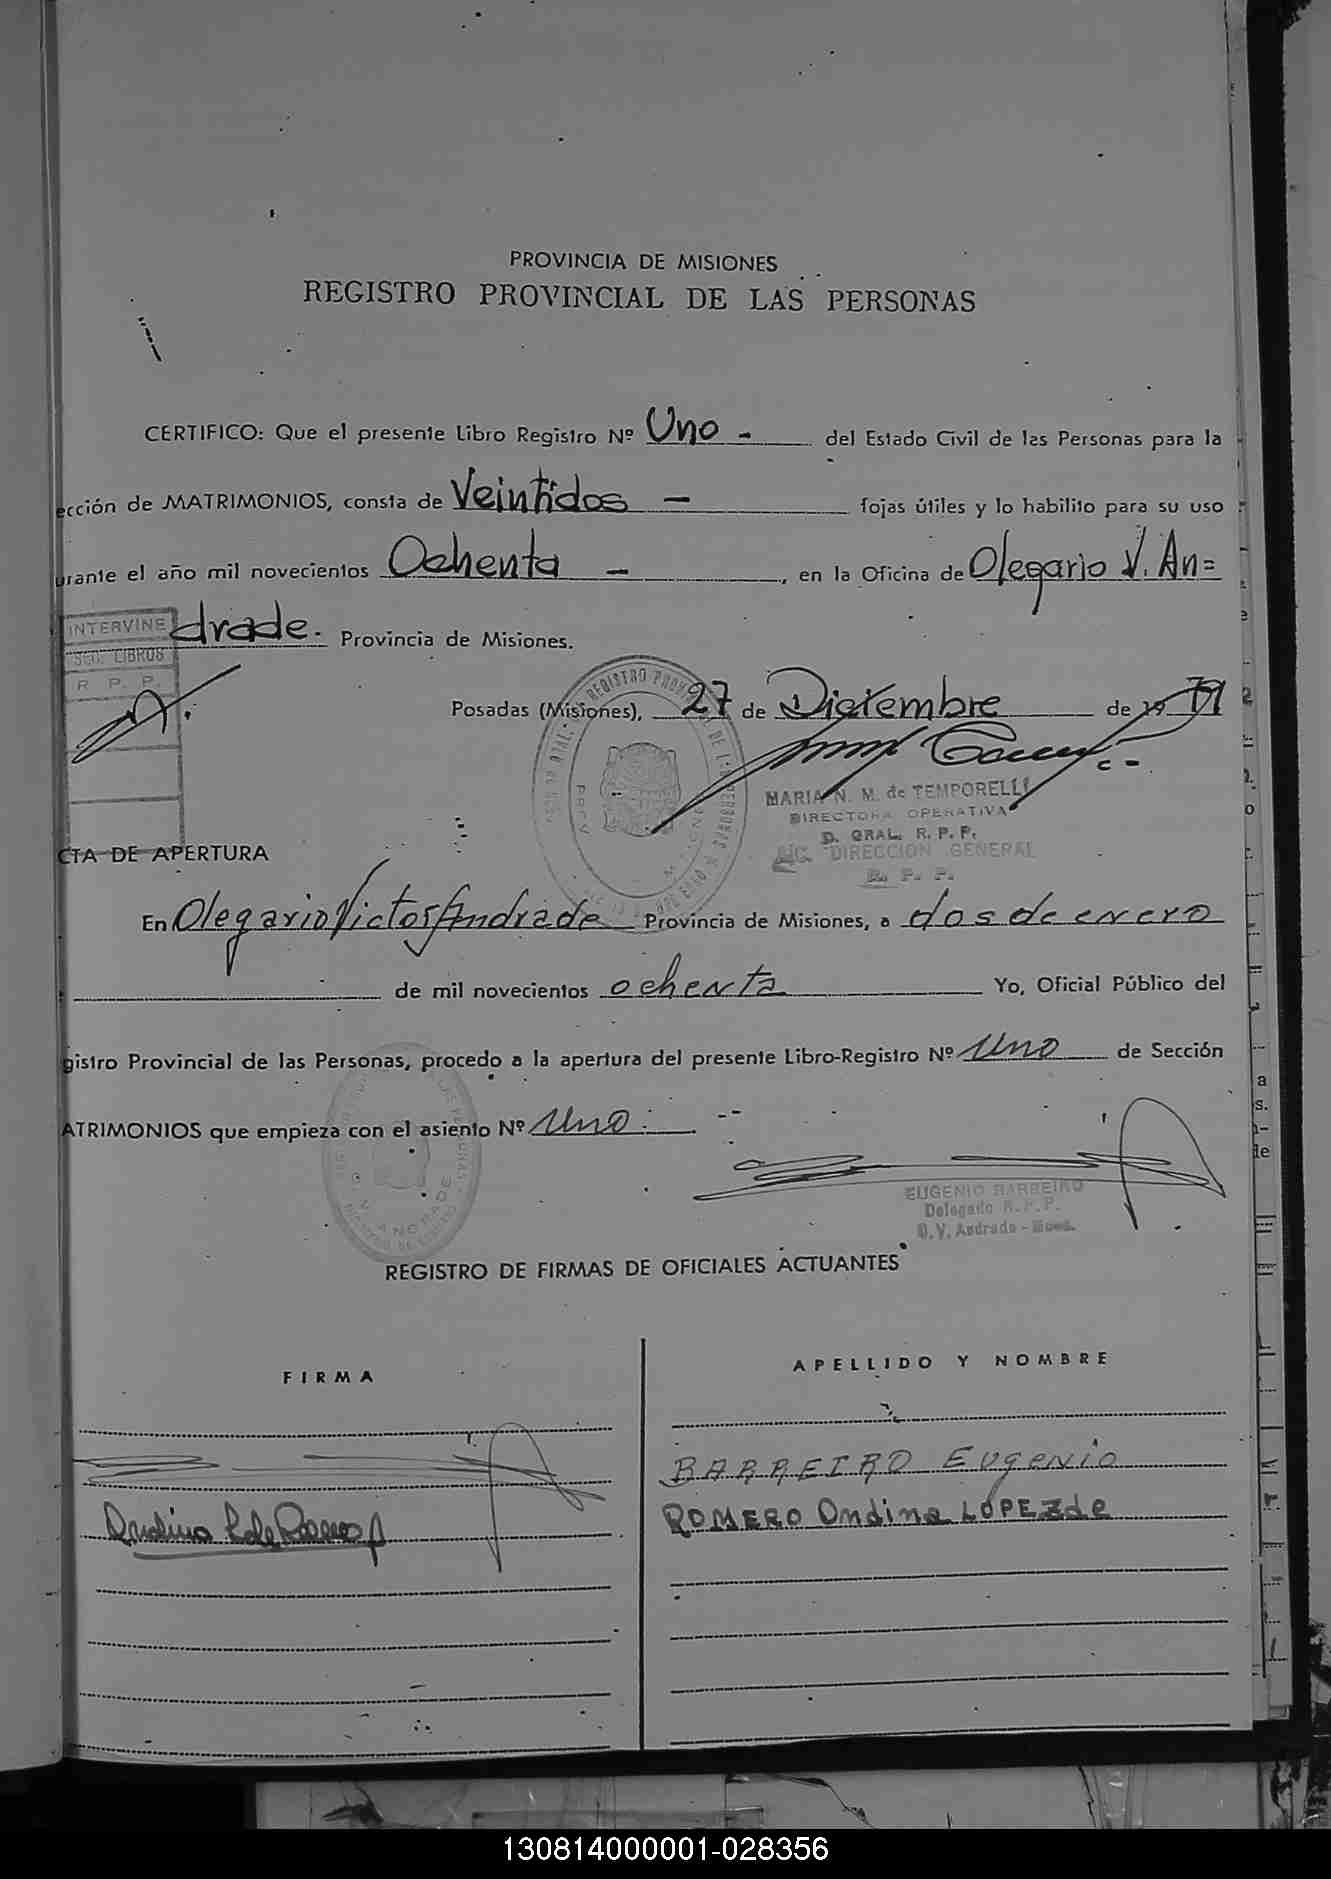 PROVINCIA DE MISIONES
REGISTRO PROVINCIAL DE LAS PERSONAS
CERTIFICO: Que el presente Libro Registro Nº Uno - del Estado Civil de las Personas para la
ección de MATRIMONIOS, consta de Veintidos - fojas útiles y lo habilito para su uso
urante el año mil novecientos Ochenta - , en la Oficina de Olegario V. An=
drade. Provincia de Misiones.
INTERVINE
SEC. LIBROS
R. P. P.
Posadas (Misiones), 27 de Diciembre de 1979
MARIA N. M. de TEMPORELLI
DIRECTORA OPERATIVA
D. GRAL. R. P. P.
DIRECCION GENERAL
R. P. P.
CTA DE APERTURA
En Olegario Victor Andrade Provincia de Misiones, a dos de enero
de mil novecientos ochenta Yo, Oficial Público del
gistro Provincial de las Personas, procedo a la apertura del presente Libro-Registro Nº Uno de Sección
ATRIMONIOS que empieza con el asiento Nº Uno.
EUGENIO BARREIRO
Delegado R.P.P.
O.V. Andrade - Mnes.
REGISTRO DE FIRMAS DE OFICIALES ACTUANTES
FIRMA
APELLIDO Y NOMBRE
BARREIRO Eugenio
ROMERO Ondina LOPEZ de
130814000001-028356